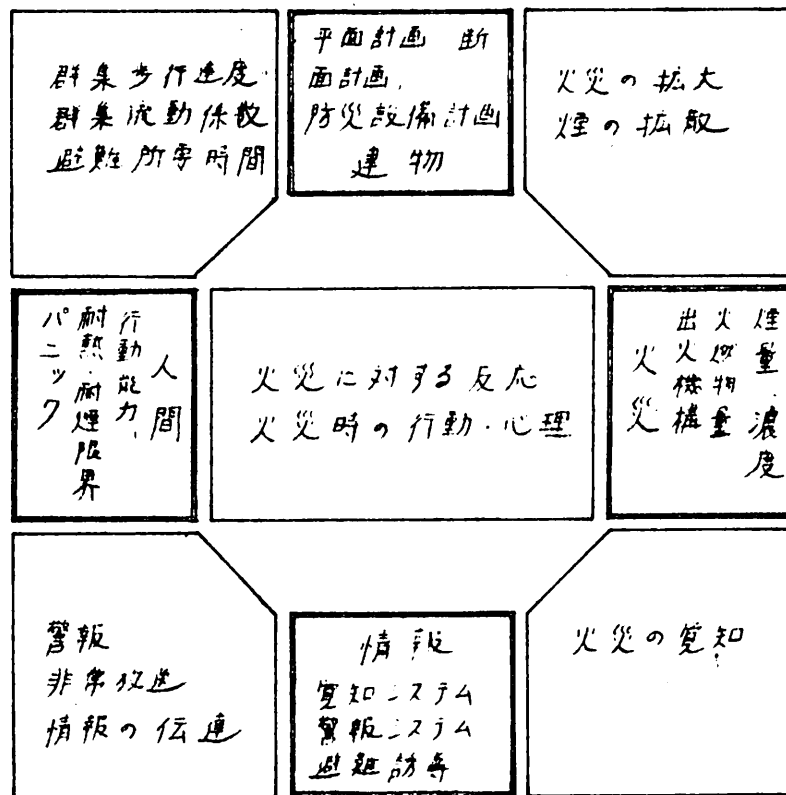 群集歩行速度
群集流動係数
避難所要時間
平面計画 断
面計画,
防災設備計画
建物
火災の拡大
煙の拡散
人間
行動能力,
耐熱・耐煙限界
パニック
火災に対する反応
火災時の行動・心理
煙量・濃度
火燃物量
出火機構
火災
警報
非常放送
情報の伝達
情報
覚知システム
警報システム
避難誘導
火災の覚知